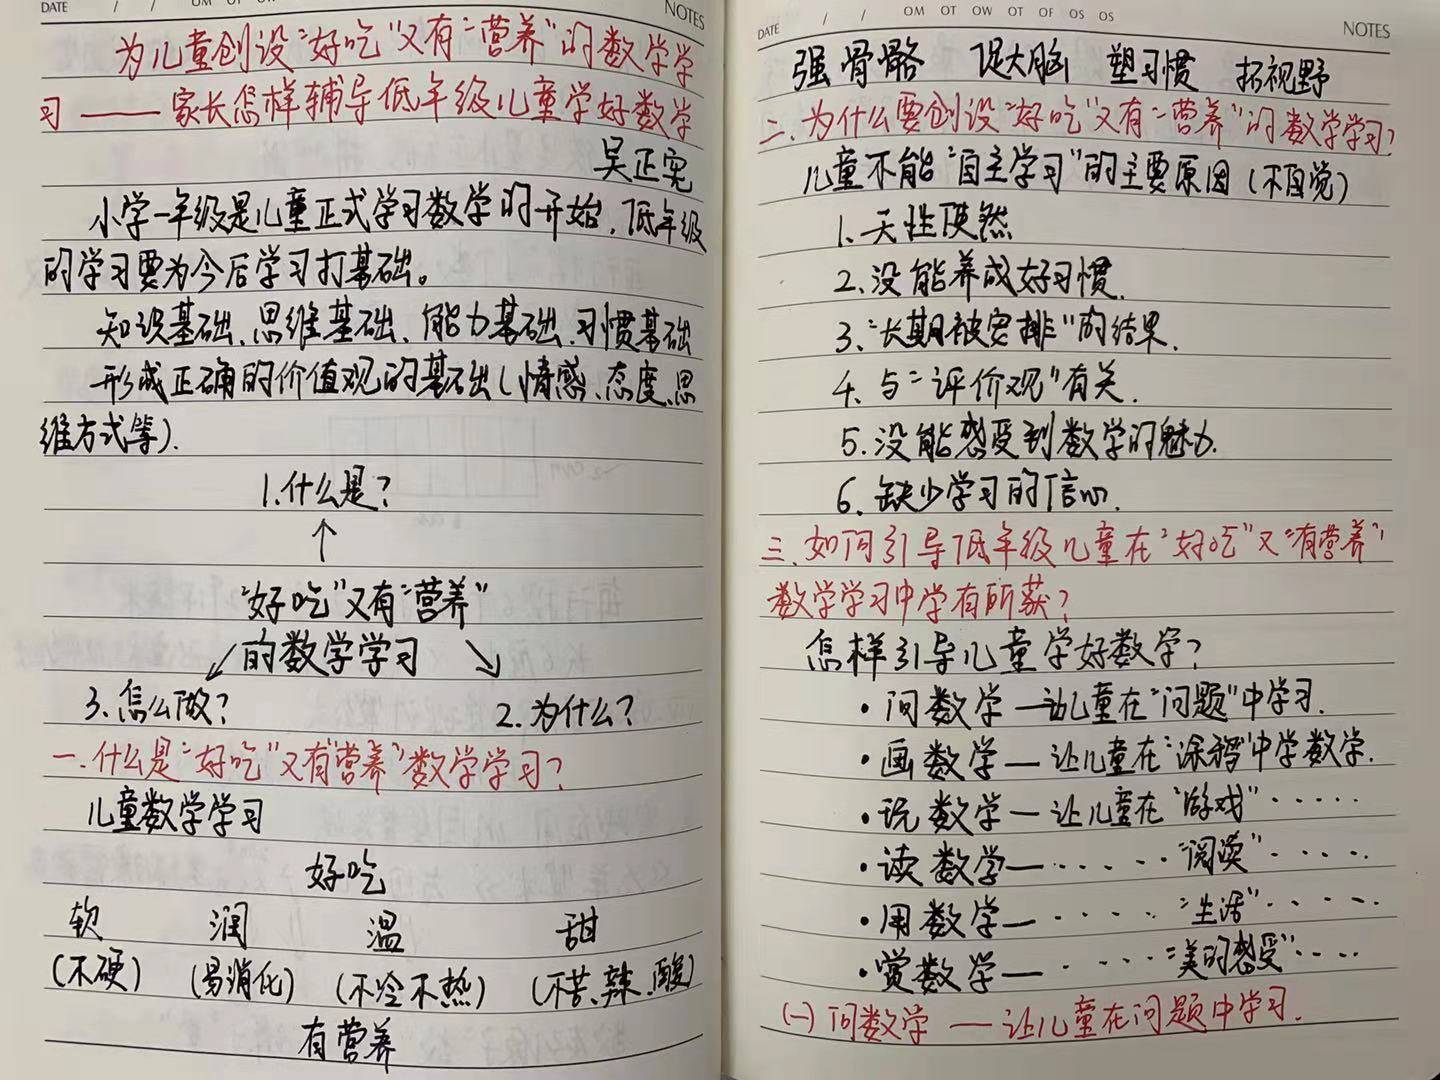 DATE / / OM OT OW
NOTES
为儿童创设"好吃"又有"营养"的数学学
习——家长怎样辅导低年级儿童学好数学
吴正宪
小学一年级是儿童正式学习数学的开始,低年级
的学习要为今后学习打基础。
知识基础、思维基础、能力基础、习惯基础
形成正确的价值观的基础(情感、态度、思
维方式等).
1.什么是?
↑
"好吃"又有"营养"
↙的数学学习↘
3.怎么做? 2.为什么?
一.什么是"好吃"又有"营养"数学学习?
儿童数学学习
好吃
软 润 温 甜
(不硬) (易消化) (不冷不热) (不苦、辣、酸)
有营养
DATE / / OM OT OW OT OF OS OS
NOTES
强骨骼 促大脑 塑习惯 拓视野
二.为什么要创设"好吃"又有"营养"的数学学习?
儿童不能"自主学习"的主要原因(不自觉)
1.天性使然
2.没能养成好习惯.
3."长期被安排"的结果.
4.与"评价观"有关.
5.没能感受到数学的魅力.
6.缺少学习的信心.
三.如何引导低年级儿童在"好吃"又"有营养"
数学学习中学有所获?
怎样引导儿童学好数字?
·问数学—让儿童在"问题"中学习.
·画数学—让儿童在"涂鸦"中学数学.
·玩数学—让儿童在"游戏"·····
·读数学—·····"阅读"·····
·用数学—·····"生活"·····
·赏数学—·····"美的感受"····
(一)问数学——让儿童在问题中学习.